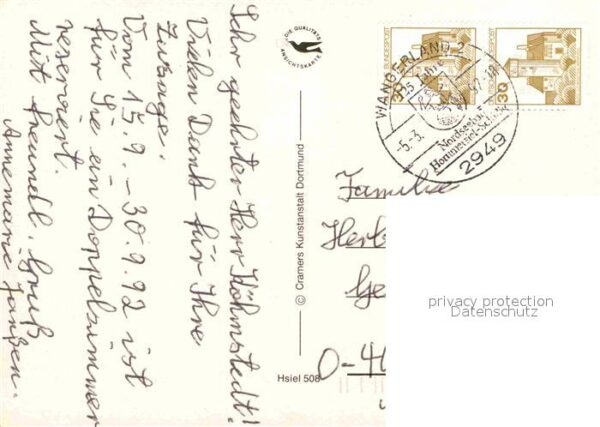 Sehr geehrter Herr Köhmstedt!
Vielen Dank für Ihre
Zusage.
Vom 15.9. – 30.9.92 ist
für Sie ein Doppelzimmer
reserviert.
Mit freundl. Gruß
Annemarie Janßen.
DIE QUALITÄTS
ANSICHTSKARTE
© Cramers Kunstanstalt Dortmund
Hsiel 508
DEUTSCHE BUNDESPOST
30
30
WANGERLAND 2
25 Jahre
-5.-3.
Hooksiel-
2949
Familie
Her
Ge
O-4
privacy protection
Datenschutz